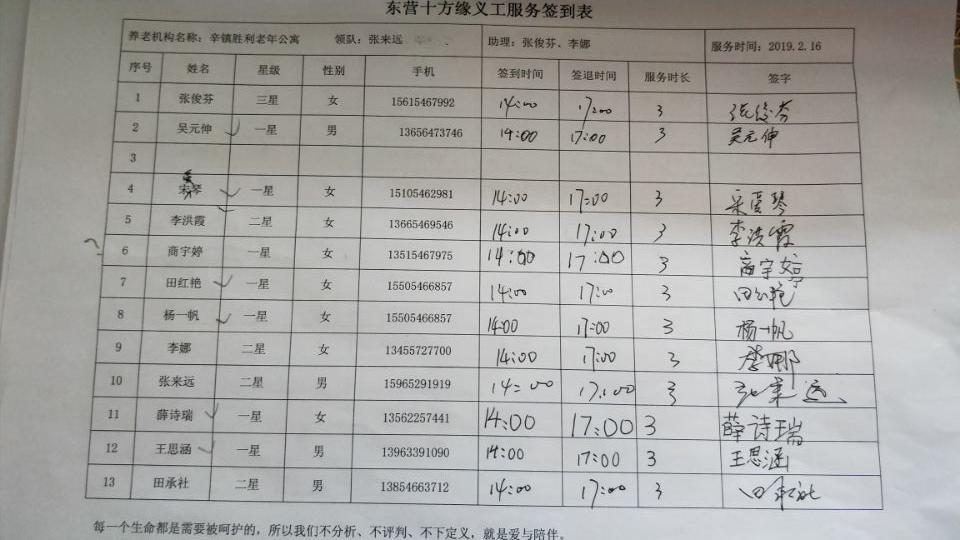 东营十方缘义工服务签到表
养老机构名称：辛镇胜利老年公寓 领队：张来远 助理：张俊芬、李娜 服务时间：2019.2.16
序号 姓名 星级 性别 手机 签到时间 签退时间 服务时长 签字
1 张俊芬 三星 女 15615467992 14:00 17:00 3 张俊芬
2 吴元伸 一星 男 13656473746 14:00 17:00 3 吴元伸
3
4 宋琴 一星 女 15105462981 14:00 17:00 3 宋爱琴
5 李洪霞 二星 女 13665469546 14:00 17:00 3 李洪霞
6 商宇婷 一星 女 13515467975 14:00 17:00 3 商宇婷
7 田红艳 一星 女 15505466857 14:00 17:00 3 田红艳
8 杨一帆 一星 女 15505466857 14:00 17:00 3 杨一帆
9 李娜 二星 女 13455727700 14:00 17:00 3 李娜
10 张来远 二星 男 15965291919 14:00 17:00 3 张来远
11 薛诗瑞 一星 女 13562257441 14:00 17:00 3 薛诗瑞
12 王思涵 一星 男 13963391090 14:00 17:00 3 王思涵
13 田承社 二星 男 13854663712 14:00 17:00 3 田承社
每一个生命都是需要被呵护的，所以我们不分析、不评判、不下定义，就是爱与陪伴。